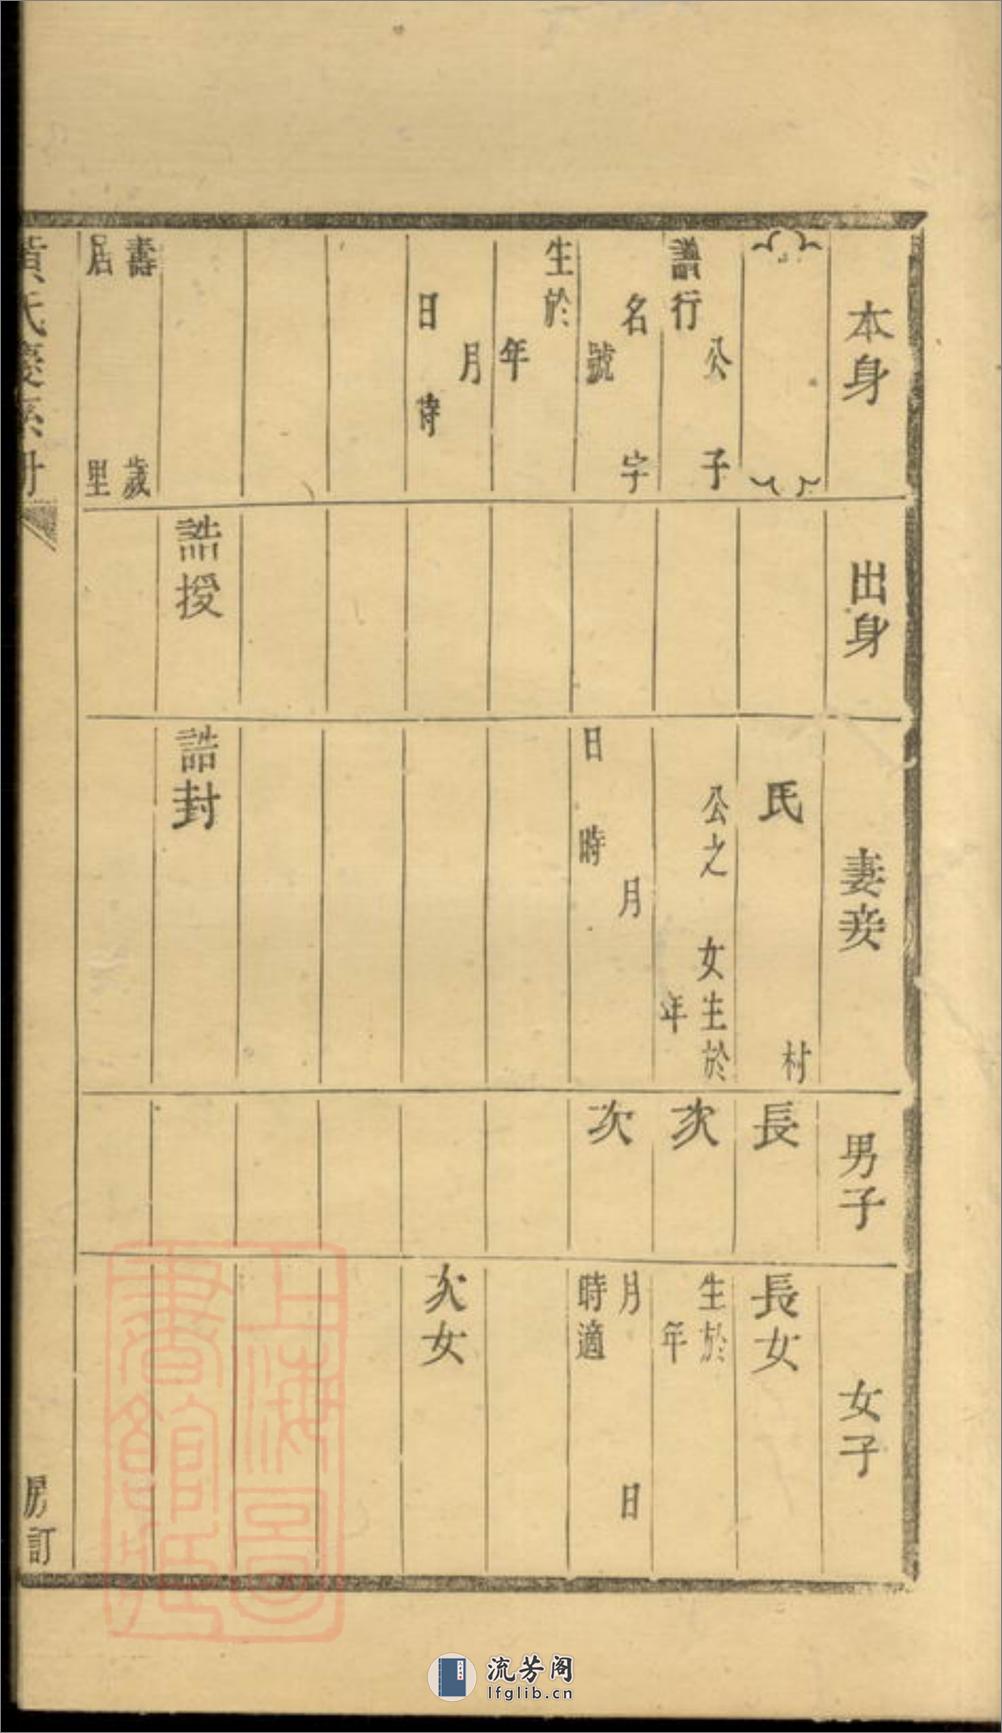 本身
出身
妻妾
男子
女子
行 公 子
名 字
號
生於
年
月
日 時
壽 歲
居 里
誥授
氏
村
公之 女生於
年
月
日 時
誥封
長
次
次
長女
生於
年
月 日
時適
次女
黃氏慶系冊
房訂
上海圖
書館藏
流芳阁
lfglib.cn